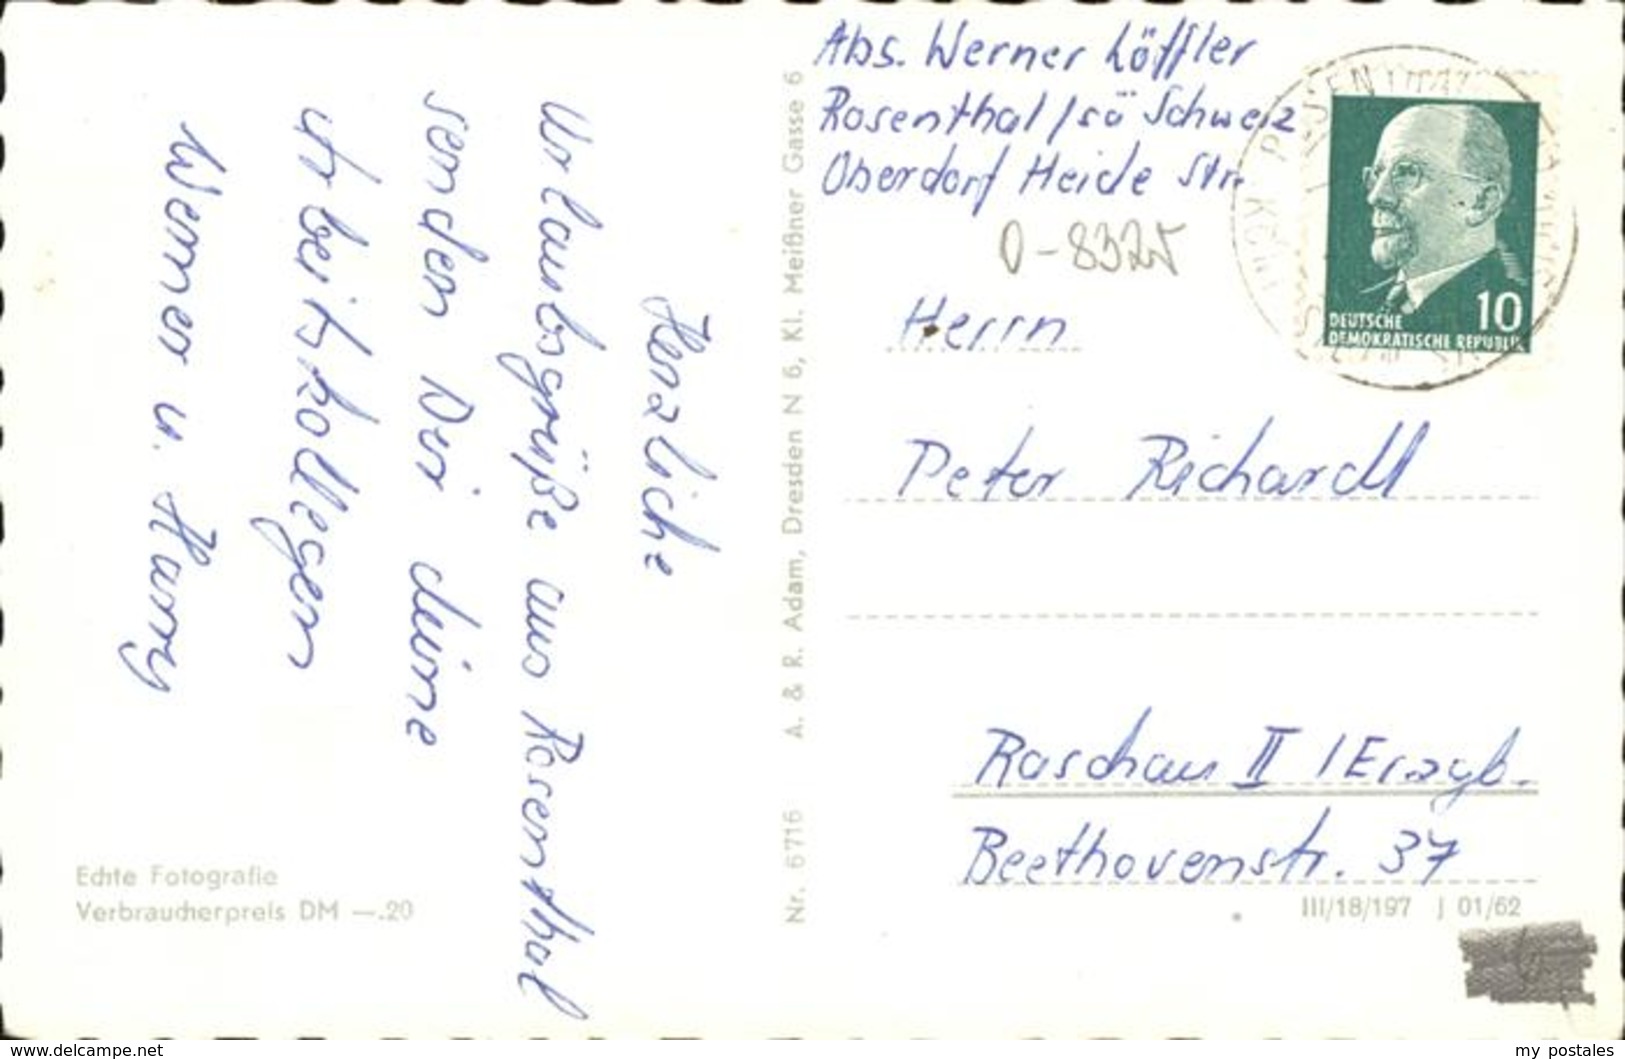 Abs. Werner Löffler
Rosenthal/sä Schweiz
Oberdorf Heide Str.
O-8325
Herrn
Peter Richardt
Raschau II /Erzgb.
Beethovenstr. 37
Herzliche
Urlaubsgrüße aus Rosenthal
senden Dir deine
Arbeitskollegen
Werner u. Harry
Nr. 6716 A. & R. Adam, Dresden N 6, Kl. Meißner Gasse 6
Echte Fotografie
Verbraucherpreis DM —.20
III/18/197 J 01/62
10
DEUTSCHE
DEMOKRATISCHE REPUBLIK
www.delcampe.net
my postales